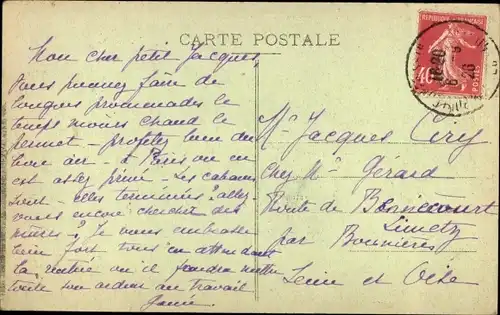 CARTE POSTALE
RÉPUBLIQUE FRANÇAISE
POSTES
40
16-20
6 - 9
26
Mon cher petit Jacques,
Vous pouvez faire de
longues promenades le
temps moins chaud le
permet - profitez bien du
bon air - à Paris on en
est assez privé. Les cabanes
sont-elles terminées? allez-
vous encore chercher des
mûres? Je vous embrasse
bien fort tous en attendant
la rentrée où il faudra mettre
toute son ardeur au travail
Mr Jacques
chez Mr Gérard
Route de Bennecourt
Limetz
par Bonnières
Seine et Oise